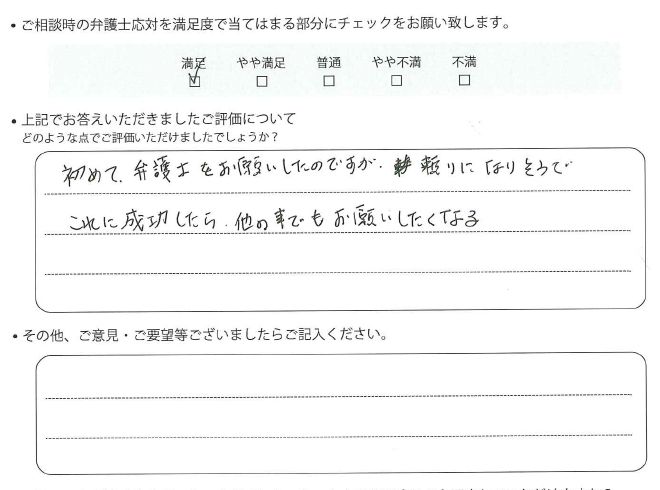 • ご相談時の弁護士応対を満足度で当てはまる部分にチェックをお願い致します。
満足 やや満足 普通 やや不満 不満
☑ □ □ □ □
• 上記でお答えいただきましたご評価について
どのような点でご評価いただけましたでしょうか?
初めて、弁護士をお願いしたのですが、頼りになりそうで
これに成功したら、他の事でもお願いしたくなる
• その他、ご意見・ご要望等ございましたらご記入ください。